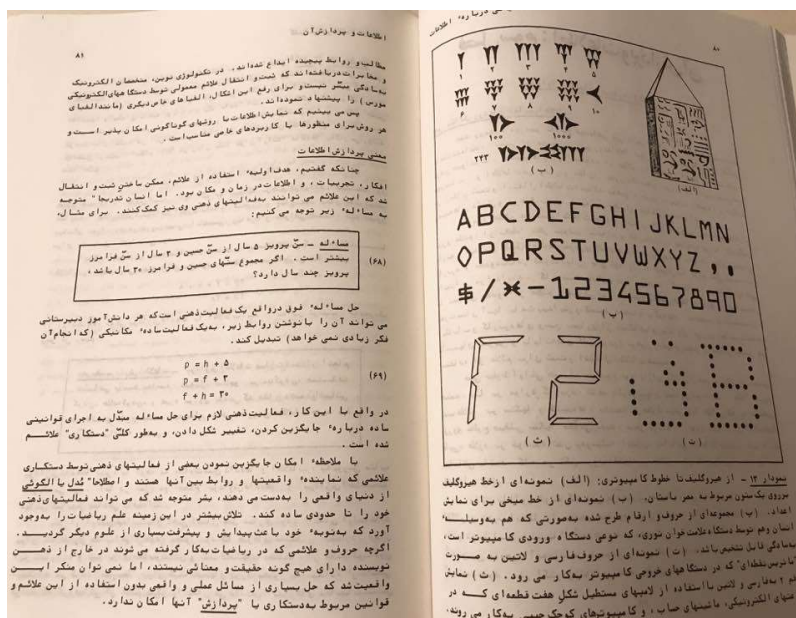 اطلاعات و پردازش آن
۸۱
مطالب و روابط پیچیده ابداع شده‌اند. در تکنولوژی نوین، متخصصان الکترونیک
و مخابرات دریافته‌اند که ثبت و انتقال علائم معمولی توسط دستگاههای الکترونیکی
به‌سادگی میسّر نیست و برای رفع این اشکال، الفباهای خاص دیگری (مانند الفبای
مورس) را پیشنهاد نموده‌اند.
پس می‌بینیم که نمایش اطلاعات با روشهای گوناگونی امکان‌پذیر است و
هر روش برای منظورها یا کاربردهای خاصی مناسب است.
معنی پردازش اطلاعات
چنانکه گفتیم، هدف اولیهٔ استفاده از علائم، ممکن ساختن ثبت و انتقال
افکار، تجربیات، و اطلاعات در زمان و مکان بود. اما انسان تدریجاً متوجه
شد که این علائم می‌توانند به‌فعالیتهای ذهنی وی نیز کمک کنند. برای مثال،
به مساءلهٔ زیر توجه می‌کنیم:
مساءله – سنّ پرویز ۵ سال از سنّ حسین و ۳ سال از سنّ فرامرز
بیشتر است. اگر مجموع سنّهای حسین و فرامرز ۳۰ سال باشد،
پرویز چند سال دارد؟
(۶۸)
حل مساءلهٔ فوق درواقع یک فعالیت ذهنی است که هر دانش‌آموز دبیرستانی
می‌تواند آن را با نوشتن روابط زیر، به‌یک فعالیت سادهٔ مکانیکی (که انجام آن
فکر زیادی نمی‌خواهد) تبدیل کند.
p = h + ۵
p = f + ۳
(۶۹)
f + h = ۳۰
در واقع با این کار، فعالیت ذهنی لازم برای حل مساءله مبدّل به اجرای قوانینی
ساده دربارهٔ جایگزین کردن، تغییر شکل دادن، و به‌طور کلّی "دستکاری" علائم
شده است.
با ملاحظهٔ امکان جایگزین نمودن بعضی از فعالیتهای ذهنی توسط دستکاری
علائمی که نمایندهٔ واقعیتها و روابط بین آنها هستند و اصطلاحاً مُدل یا الگوئی
از دنیای واقعی را به‌دست می‌دهند، بشر متوجه شد که می‌تواند فعالیتهای ذهنی
خود را تا حدودی ساده کند. تلاش بیشتر در این زمینه علم ریاضیات را به‌وجود
آورد که به‌نوبهٔ خود باعث پیدایش و پیشرفت بسیاری از علوم دیگر گردید.
اگرچه حروف و علائمی که در ریاضیات به‌کار گرفته می‌شوند در خارج از ذهن
نویسنده دارای هیچ گونه حقیقت و معنائی نیستند، اما نمی‌توان منکر این
واقعیت شد که حل بسیاری از مسائل عملی و واقعی بدون استفاده از این علائم و
قوانین مربوط به‌دستکاری یا "پردازش" آنها امکان ندارد.
۸۰
دربارهٔ اطلاعات
۱ ۲ ۳ ۴ ۵
۶ ۷ ۸ ۹ ۱۰
۱۰۰ ۱۰۰۰
۲۴۳
(ب)
(الف)
ABCDEFGHIJKLMN
OPQRSTUVWXYZ,.
$/*-1234567890
(پ)
۲ 2
(ث)
B
(ت)
نمودار ۱۲ – از هیروگلیف تا خطوط کامپیوتری: (الف) نمونه‌ای از خط هیروگلیف
برروی یک ستون مربوط به مصر باستان. (ب) نمونه‌ای از خط میخی برای نمایش
اعداد. (پ) مجموعه‌ای از حروف و ارقام طرح شده به‌صورتی که هم به‌وسیلهٔ
انسان وهم توسط دستگاه علامت‌خوان نوری، که نوعی دستگاه ورودی کامپیوتر است،
به‌سادگی قابل تشخیص باشد. (ت) نمونه‌ای از حروف فارسی و لاتین به صورت
"ماتریس نقطه‌ای" که در دستگاههای خروجی کامپیوتر به‌کار می‌رود. (ث) نمایش
رقم ۲ به‌فارسی و لاتین با استفاده از لامپهای مستطیل شکل هفت قطعه‌ای که در
الکترونیکی، ماشینهای حساب، و کامپیوترهای کوچک جیبی به‌کار می‌روند.